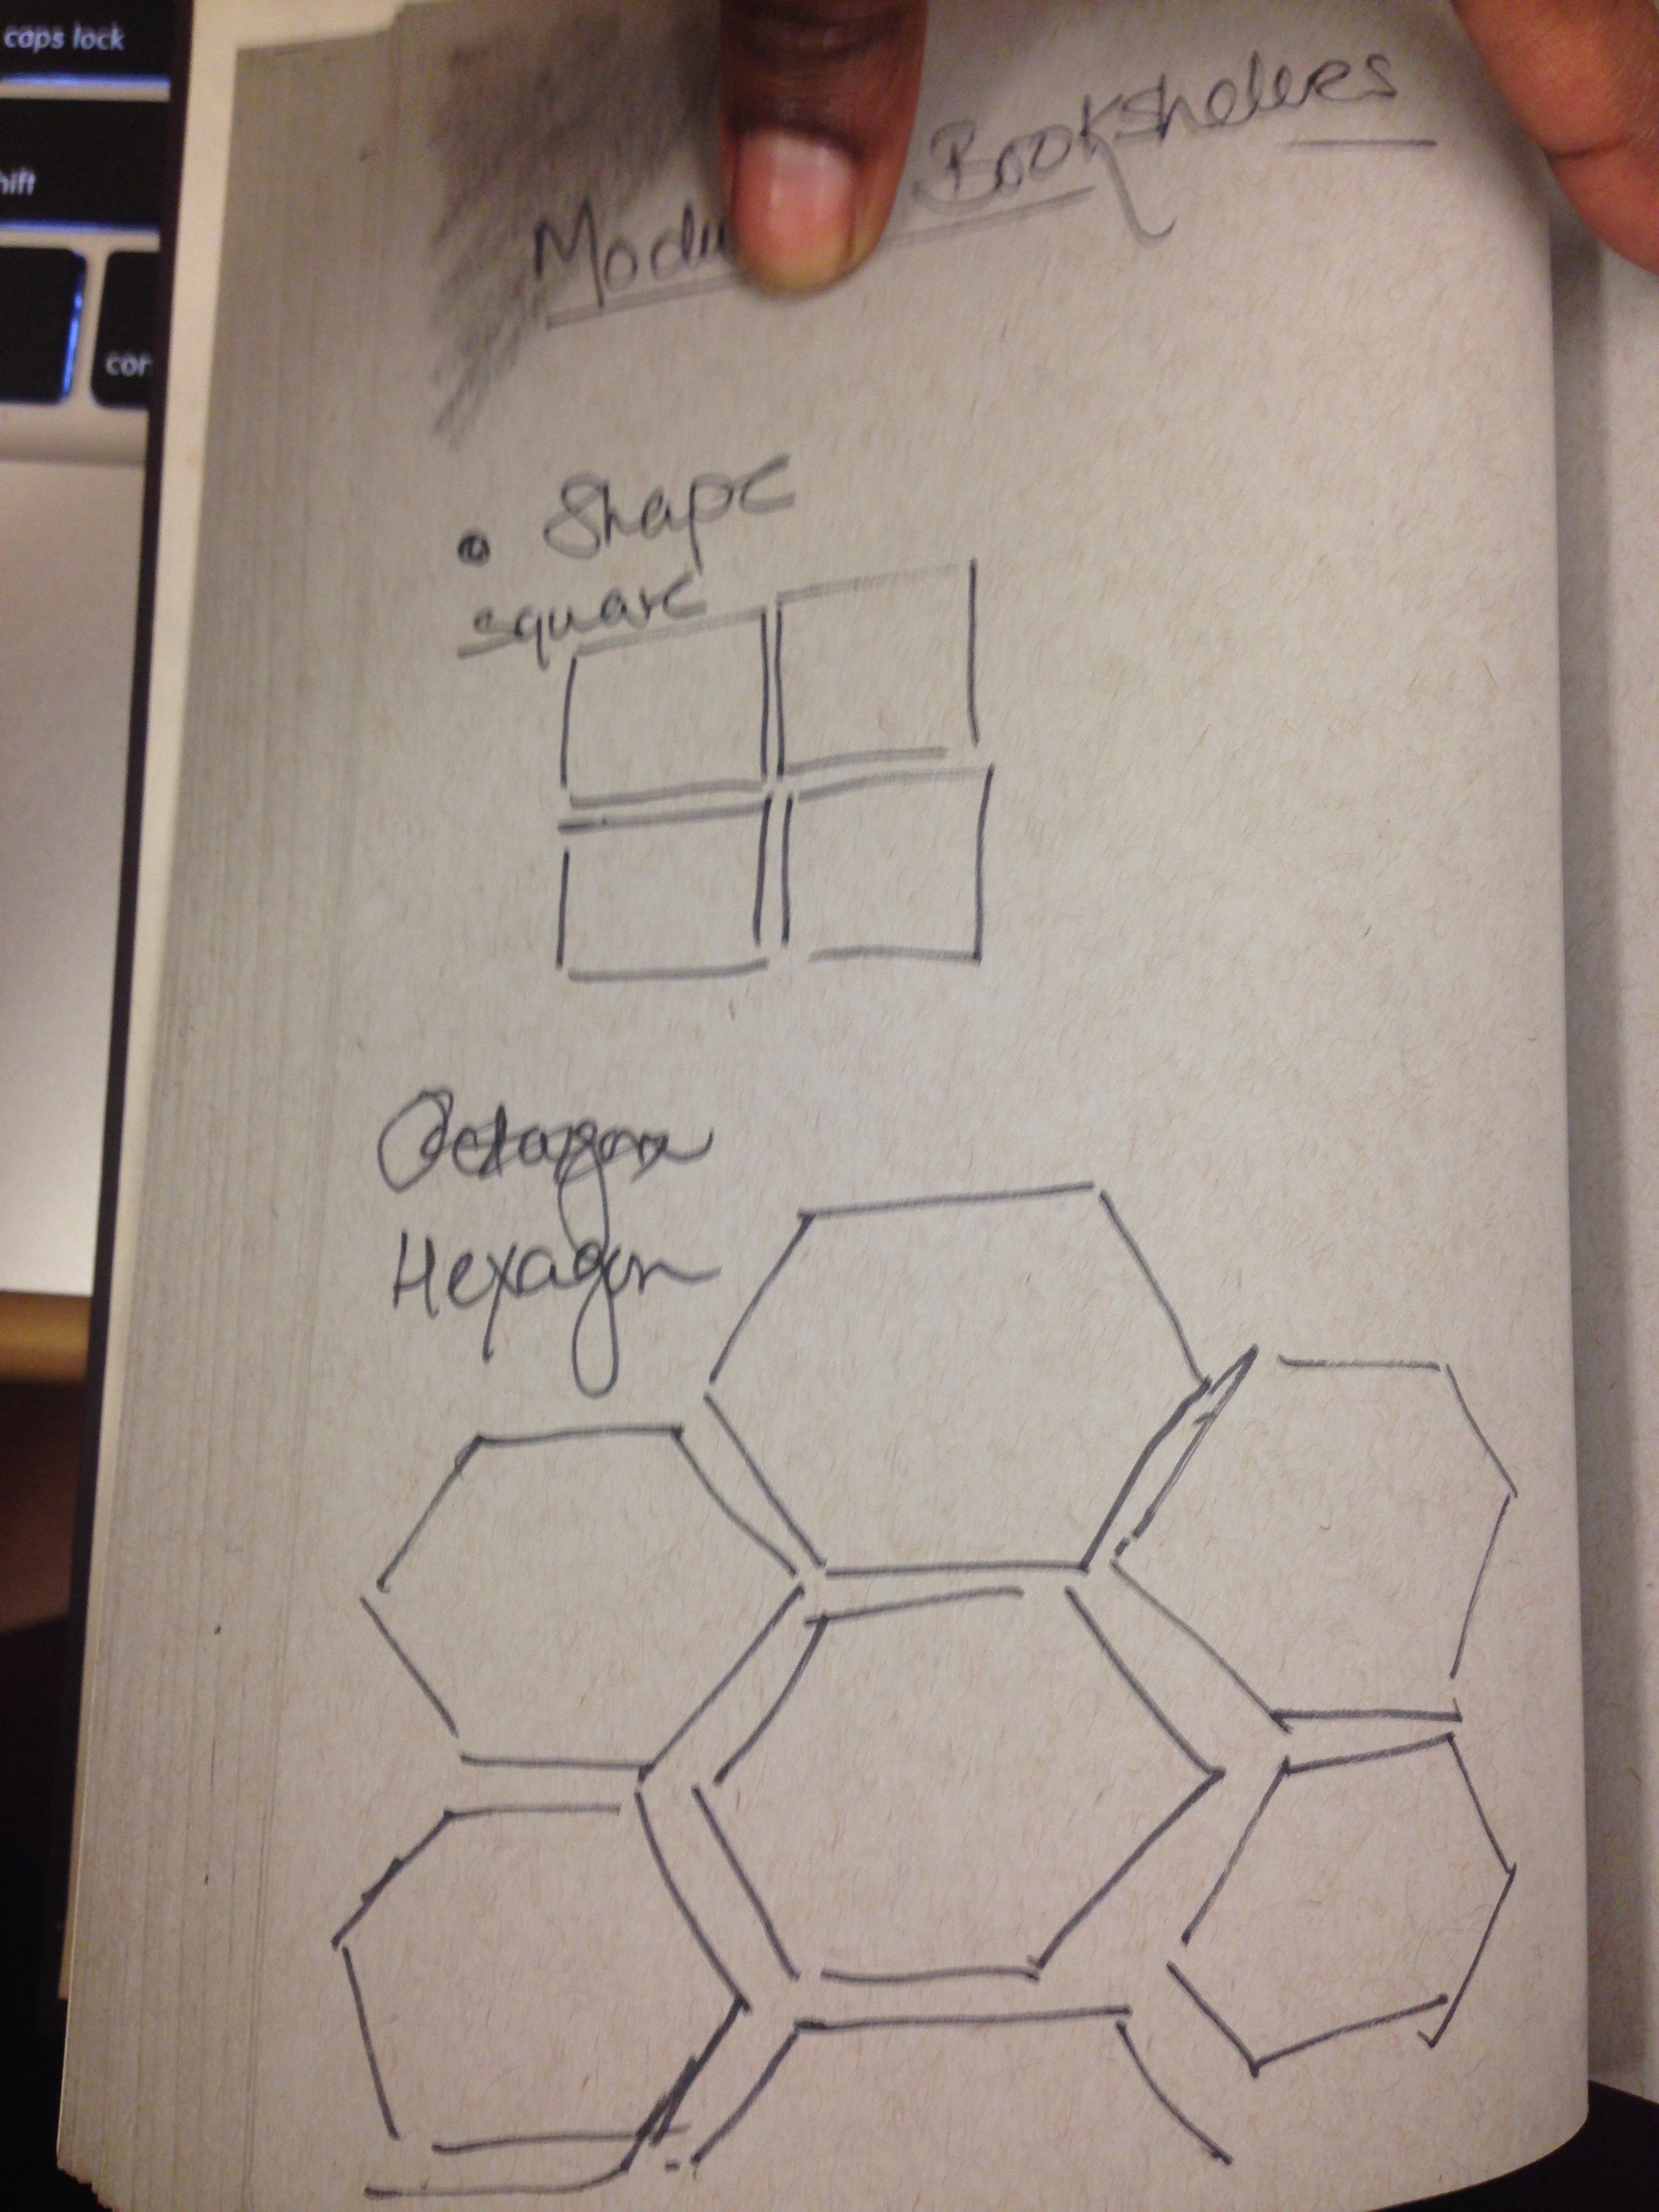 caps lock
hift
cor
Modu Bookshelves
• Shape
square
Octagon
Hexagon